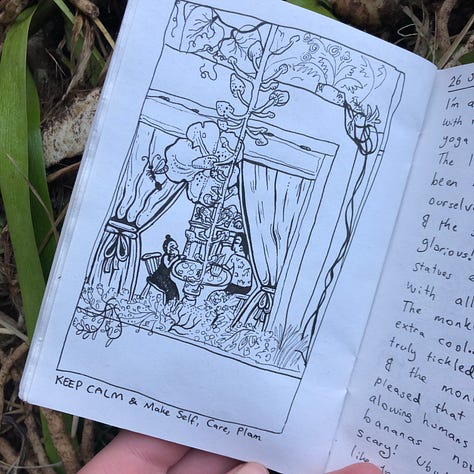 KEEP CALM & Make Self, Care, Plam
26 J
I'm a
with m
yoga
The
been
ourselv
& the
glorious!
statues
with all
The monk
extra cool
truly tickled
& the mon
pleased that
alowing humans
bananas – no
scary!
like